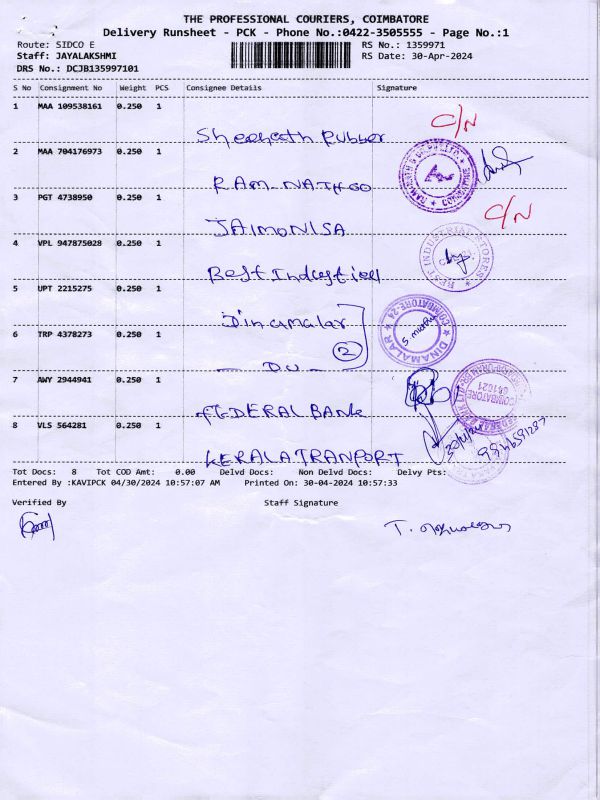 THE PROFESSIONAL COURIERS, COIMBATORE
Delivery Runsheet - PCK - Phone No.:0422-3505555 - Page No.:1
Route: SIDCO E RS No.: 1359971
Staff: JAYALAKSHMI RS Date: 30-Apr-2024
DRS No.: DCJB135997101
S No Consignment No Weight PCS Consignee Details Signature
1 MAA 109538161 0.250 1
Sheenath Rubber C/N
2 MAA 704176973 0.250 1
RAM-NATH GO
3 PGT 4738950 0.250 1
JAIMONISA C/N
4 VPL 947875028 0.250 1
Best Industries
BEST INDUSTRIAL STORES
5 UPT 2215275 0.250 1
Dinamalar
DINAMALAR COIMBATORE-24
6 TRP 4378273 0.250 1
- DU - 2
7 AWY 2944941 0.250 1
FEDERAL BANK
COIMBATORE
641021
8 VLS 564281 0.250 1
KERALA TRANPORT
Tot Docs: 8 Tot COD Amt: 0.00 Delvd Docs: Non Delvd Docs: Delvy Pts:
Entered By :KAVIPCK 04/30/2024 10:57:07 AM Printed On: 30-04-2024 10:57:33
Verified By Staff Signature